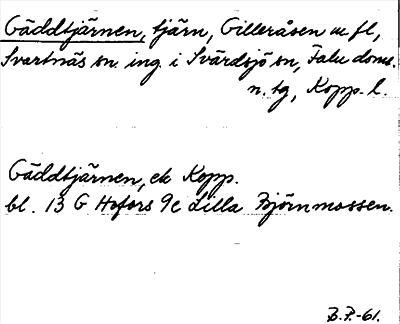 Gäddtjärnen, tjärn, Gilleråsen m fl,
Svartnäs sn. ing. i Svärdsjö sn, Falu doms.
n. tg, Kopp. l.
Gäddtjärnen, ek Kopp.
bl. 13 G Hofors 9c Lilla Björnmossen.
B.P.-61.